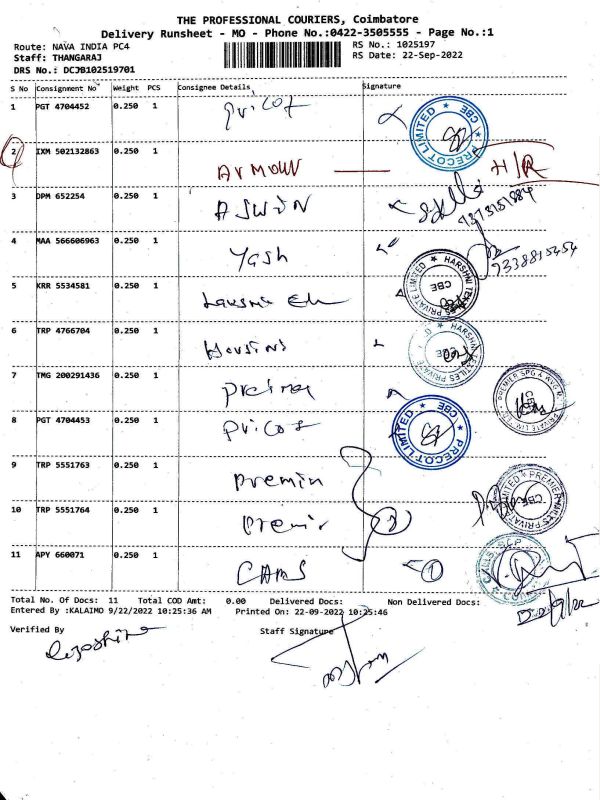 THE PROFESSIONAL COURIERS, Coimbatore
Delivery Runsheet - MO - Phone No.:0422-3505555 - Page No.:1
Route: NAVA INDIA PC4 RS No.: 1025197
Staff: THANGARAJ RS Date: 22-Sep-2022
DRS No.: DCJB102519701
S No Consignment No Weight PCS Consignee Details Signature
1 PGT 4704452 0.250 1 Pricot
PRECOT LIMITED ★ CBE ★
2 IXM 502132863 0.250 1 ARMOUR H/R
3 DPM 652254 0.250 1 ASWIN
4 MAA 566606963 0.250 1 Yash
9338815454
5 KRR 5534581 0.250 1
HARSHNI TEXTILES PRIVATE LIMITED ★ CBE
6 TRP 4766704 0.250 1
7 TMG 200291436 0.250 1
8 PGT 4704453 0.250 1 Pricot
PRECOT LIMITED ★ CBE ★
9 TRP 5551763 0.250 1 Premir
10 TRP 5551764 0.250 1 Premir 2
11 APY 660071 0.250 1 CAMS 1
Total No. Of Docs: 11 Total COD Amt: 0.00 Delivered Docs: Non Delivered Docs:
Entered By :KALAIMO 9/22/2022 10:25:36 AM Printed On: 22-09-2022 10:25:46
Verified By Staff Signature